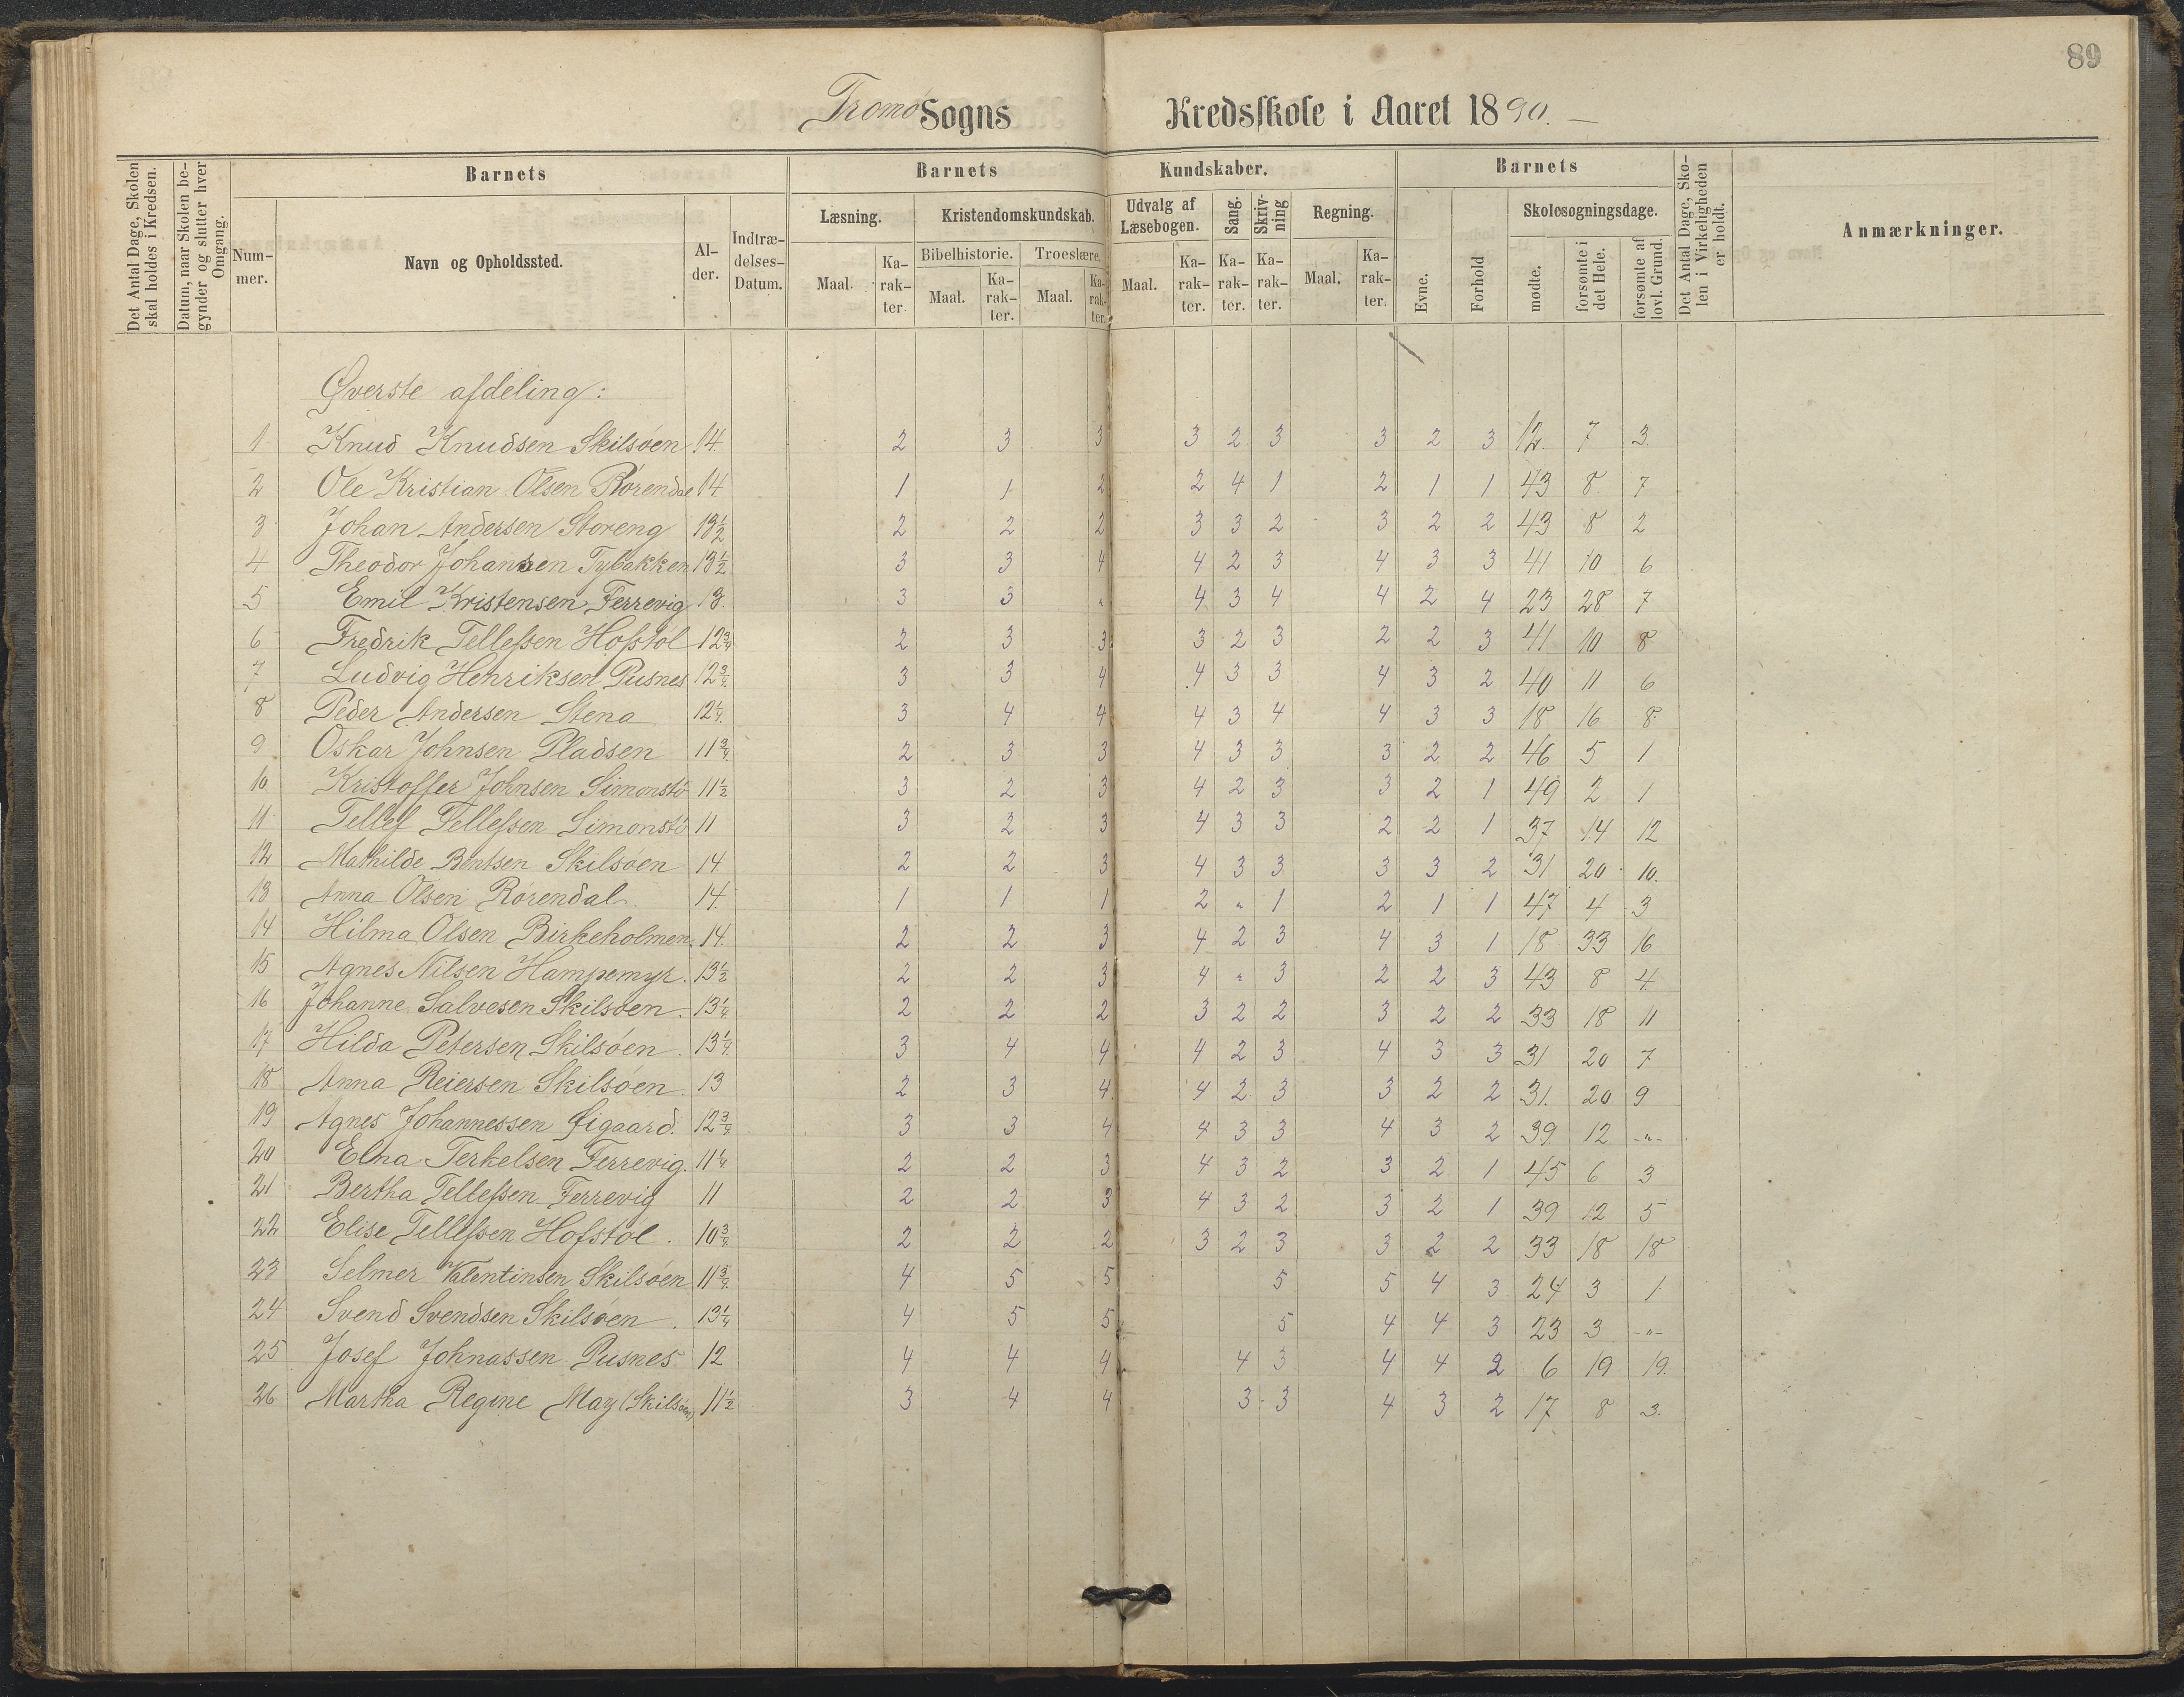 89
Tromø Sogns Kredsskole i Aaret 1890. —
Det Antal Dage, Skolen skal holdes i Kredsen.
Datum, naar Skolen begynder og slutter hver Omgang.
Barnets
Nummer.
Navn og Opholdssted.
Alder.
Indtrædelses-Datum.
Barnets Kundskaber.
Læsning. Kristendomskundskab. Udvalg af Læsebogen. Sang. Skrivning Regning.
Bibelhistorie. Troeslære.
Maal. Karakter. Maal. Karakter. Maal. Karakter. Maal. Karakter. Karakter. Karakter. Maal. Karakter.
Barnets
Evne. Forhold
Skolesøgningsdage.
mødte. forsømte i det Hele. forsømte af lovl. Grund.
Det Antal Dage, Skolen i Virkeligheden er holdt.
Anmærkninger.
Øverste afdeling:
1 Knud Knudsen Skilsøen 14. 2 3 3 3 2 3 3 2 3 12. 7 3.
2 Ole Kristian Olsen Rørendal 14 1 1 2 2 4 1 2 1 1 43 8. 7
3 Johan Andersen Storeng 13½ 2 2 2 3 3 2 3 2 2 43 8 2
4 Theodor Johansen Tybakken 13½ 3 3 4 4 2 3 4 3 3 41 10 6
5 Emil Kristensen Ferrevig 13. 3 3 " 4 3 4 4 2 4 23 28 7
6 Fredrik Tellefsen Hofstøl 12¾ 2 3 3 3 2 3 2 2 3 41 10 8
7 Ludvig Henriksen Pusnes 12¾. 3 3 4 4 3 3 4 3 2 40 11 6
8 Peder Andersen Stena 12¼. 3 4 4 4 3 4 4 3 3 18 16 8.
9 Oskar Johnsen Pladsen 11¾ 2 3 3 4 3 3 3 2 2 46 5 1
10 Kristoffer Johnsen Simonstø 11½ 3 2 3 4 2 3 3 2 1 49 2 1
11 Tellef Tellefsen Simonstø 11 3 2 3 4 3 3 2 2 1 37 14 12
12 Mathilde Bentsen Skilsøen 14. 2 2 3 4 3 3 3 3 2 31 20 10.
13 Anna Olsen Rørendal. 14. 1 1 1 2 " 1 2 1 1 47 4 3
14 Hilma Olsen Birkeholmen. 14. 2 2 3 4 2 3 4 3 1 18 33 16
15 Agnes Nilsen Hampemyr. 13½ 2 2 3 4 " 3 2 2 3 43 8 4.
16 Johanne Salvesen Skilsøen. 13¼ 2 2 2 3 2 2 3 2 2 33 18 11
17 Hilda Petersen Skilsøen. 13¼. 3 4 4 4 2 3 4 3 3 31 20 7
18 Anna Reiersen Skilsøen. 13 2 3 4. 4 2 3 3 2 2 31. 20 9
19 Agnes Johannessen Øigaard. 12¾. 3 3 4 4 3 3 4 3 2 39. 12 -"-
20 Elna Terkelsen Ferrevig. 11¼ 2 2 3 4 3 2 3 2 1 45 6 3
21 Bertha Tellefsen Ferrevig 11 2 2 3 4 3 2 3 2 1 39 12 5
22 Elise Tellefsen Hofstøl. 10¾ 2 2 2 3 2 3 3 2 2 33 18 18
23 Selmer Valentinsen Skilsøen 11¾. 4 5 5 5 5 4 3 24 3 1.
24 Svend Svendsen Skilsøen. 13¼ 4 5 5 5 4 4 3 23 3 -"-
25. Josef Johnassen Pusnes 12 4 4 4 4 3 4 4 2 6 19 19.
26 Martha Regine May (Skilsøen) 11½ 3 4 4 3 3 4 3 2 17 8 3.